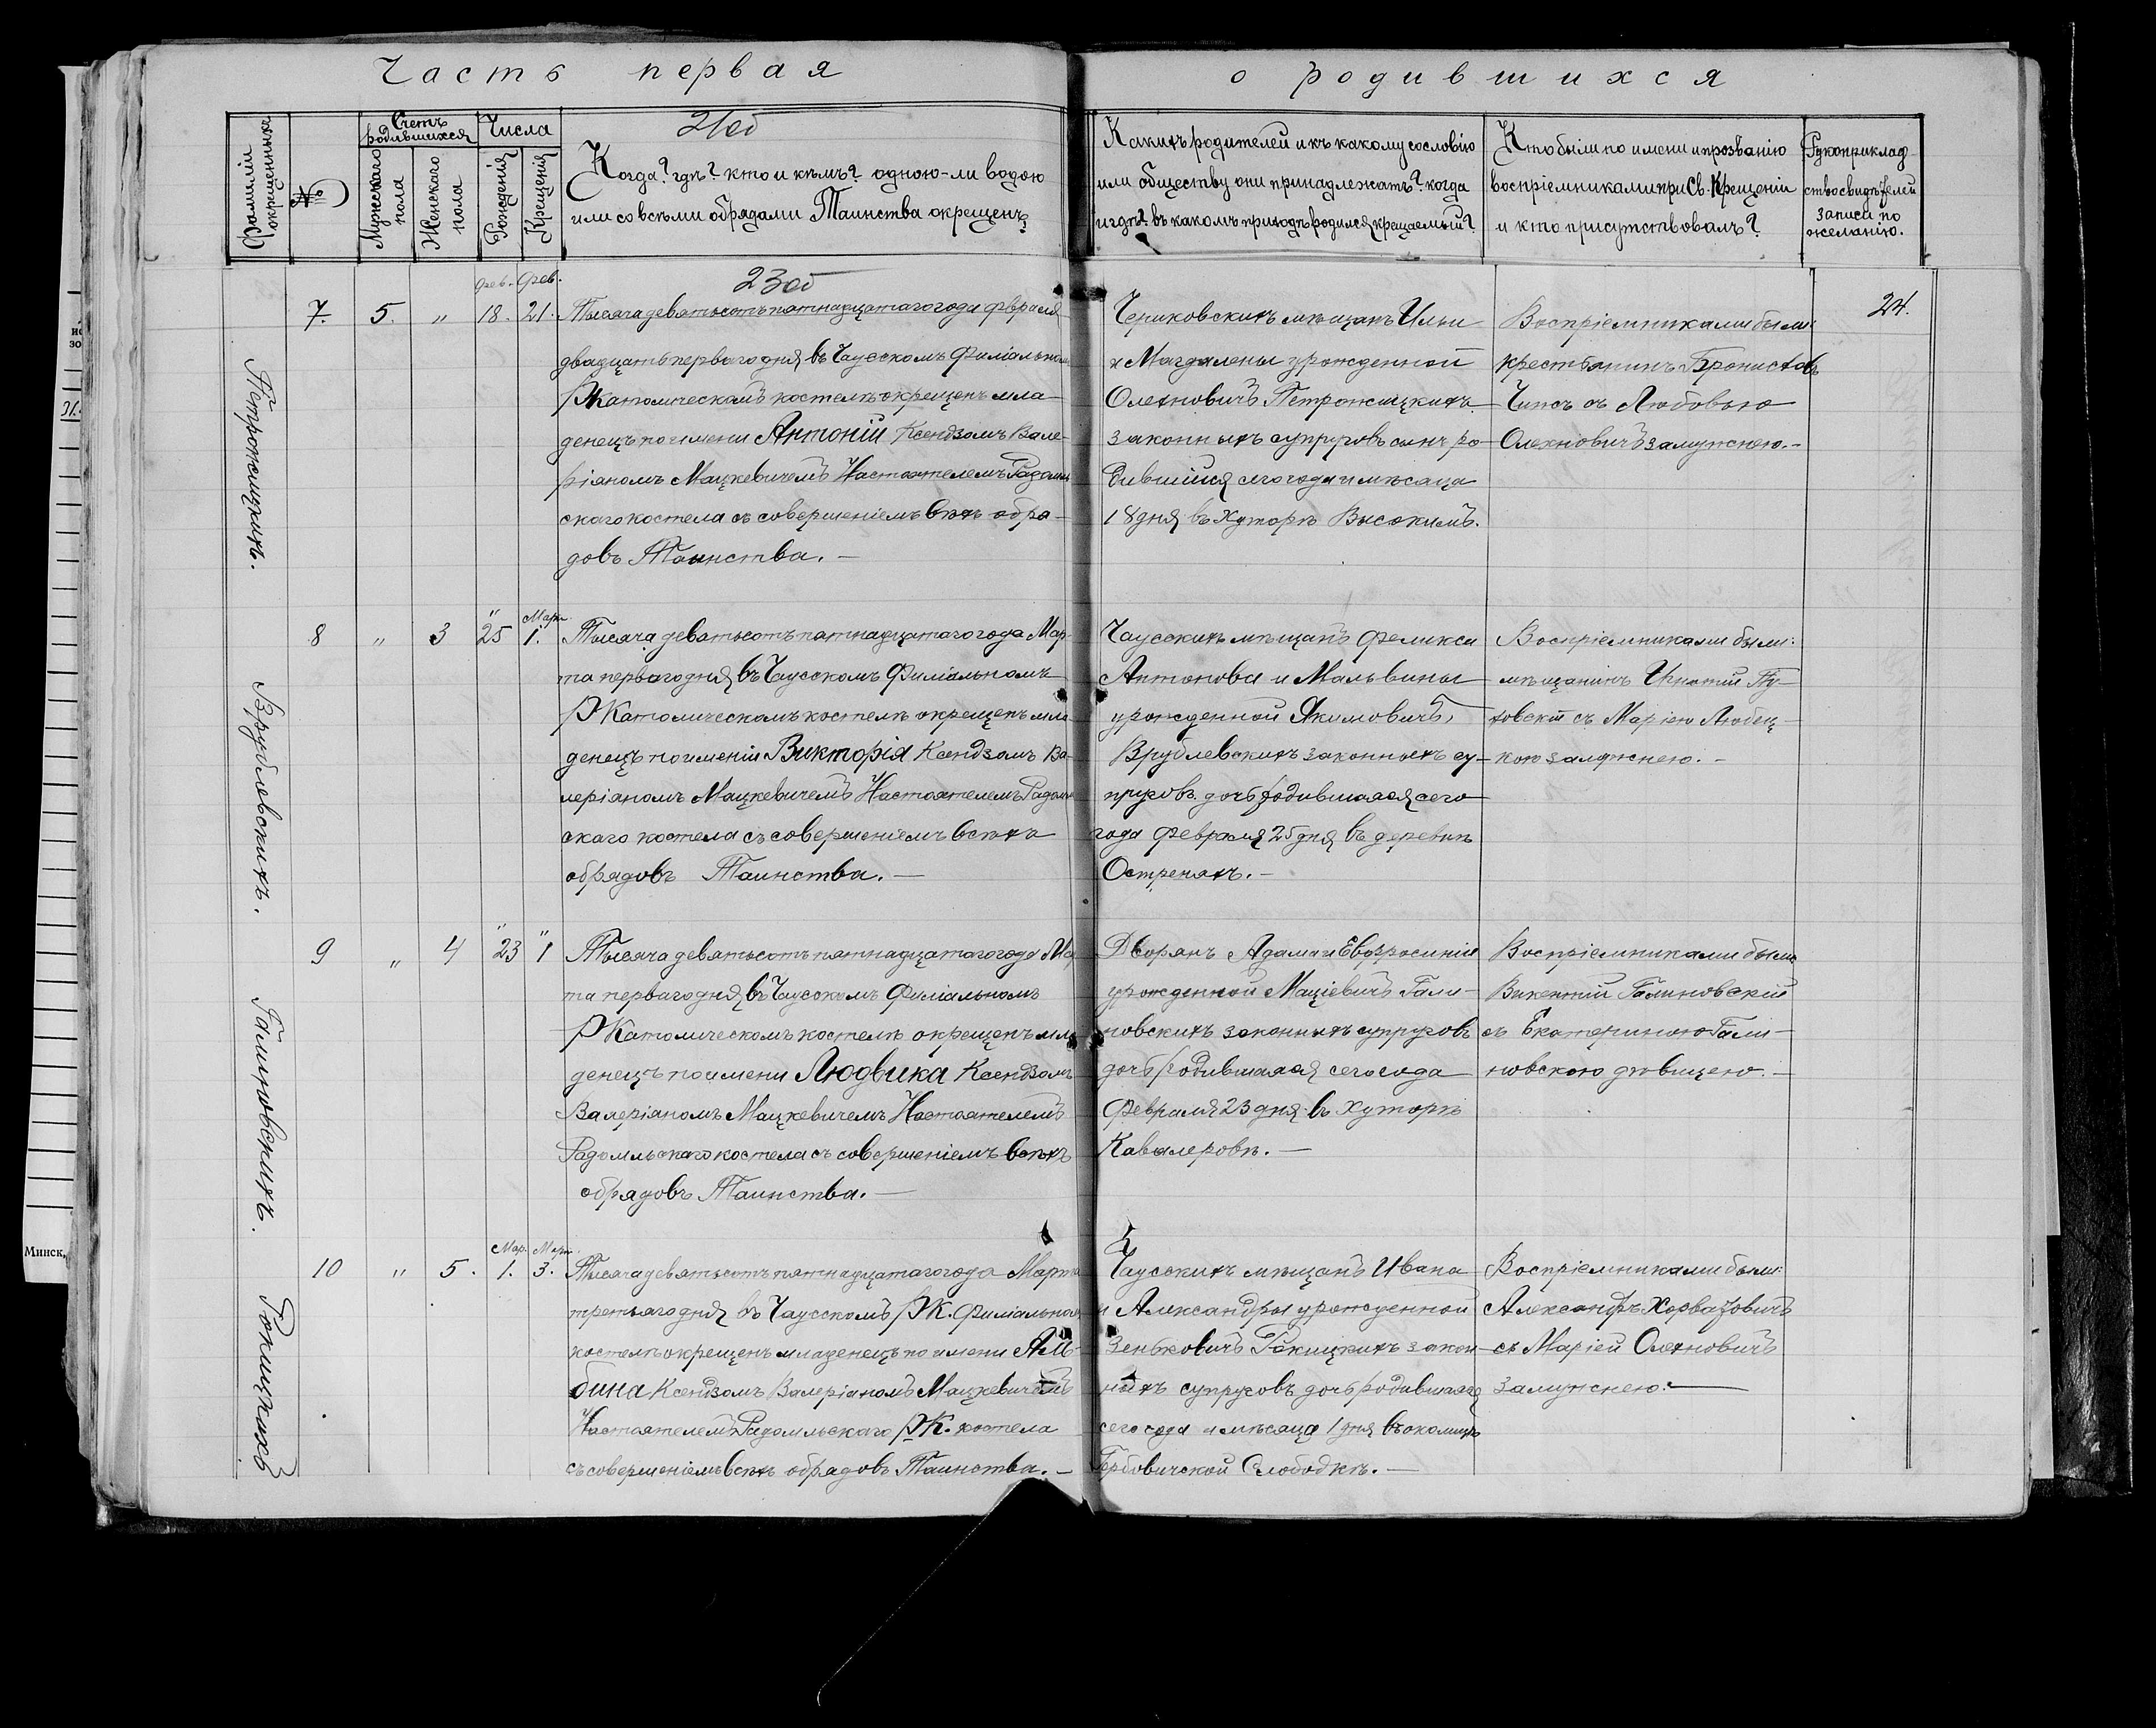 Часть первая
о родившихся
21об
Фамиліи окрещенныхъ
№
Счетъ родившихся
Мужскаго пола
Женскаго пола
Числа
Рожденія
Крещенія
Когда? гдѣ? кто и кѣмъ? одною-ли водою
или со всѣми обрядами Таинства окрещенъ
Какихъ родителей и къ какому сословію
или обществу они принадлежатъ? когда
и гдѣ? въ какомъ приходѣ родился крещаемый?
Кто были по имени и прозванію
воспріемниками при Св. Крещеніи
и кто присутствовалъ?
Рукоприклад
ство свидѣтелей
записи по
желанію.
23об
24.
Петрожицкихъ.
7.
5.
"
Фев.
18.
Фев.
21.
Тысяча девятьсотъ пятнадцатаго года февраля
двадцать перваго дня въ Чаусскомъ Филіальномъ
РКатолическомъ костелѣ окрещенъ мла-
денецъ по имени Антоній Ксендзомъ Вале-
ріаномъ Мацкевичемъ Настоятелемъ Радомль
скаго костела съ совершеніемъ всѣхъ обря-
довъ Таинства. –
Чериковскихъ мѣщанъ Ильи
и Магдалены урожденной
Олехновичъ Петрожицкихъ
законныхъ супруговъ сынъ ро-
дившійся сего года и мѣсяца
18 дня въ Хуторѣ Высокимъ.
Воспріемниками были:
крестьянинъ Брониславъ
Чипсъ съ Любовью
Олехновичъ замужнею. –
Врублевскихъ.
8
"
3
"
25
Март
1.
Тысяча девятьсотъ пятнадцатаго года Мар-
та перваго дня въ Чаусскомъ Филіальномъ
РКатолическомъ костелѣ окрещенъ мла
денецъ по имени Викторія Ксендзомъ Ва-
леріаномъ Мацкевичемъ Настоятелемъ Радомль
скаго костела съ совершеніемъ всѣхъ
обрядовъ Таинства. –
Чаусскихъ мѣщанъ Феликса
Антонова и Мальвины
урожденной Якимовичъ,
Врублевскихъ законныхъ су-
пруговъ дочь родившаяся сего
года февраля 25 дня въ деревнѣ
Остреняхъ. –
Воспріемниками были:
мѣщанинъ Игнатій
съ Маріею Любец-
кою замужнею. –
Галиновскихъ.
9
"
4
"
23
"
1
Тысяча девятьсотъ пятнадцатаго года Мар
та перваго дня въ Чаусскомъ Филіальномъ
РКатолическомъ костелѣ окрещенъ мла
денецъ по имени Людвика Ксендзомъ
Валеріаномъ Мацкевичемъ Настоятелемъ
Радомльскаго костела съ совершеніемъ всѣхъ
обрядовъ Таинства. –
Дворянъ Адама и Евфросиніи
урожденной Маціевичъ Гали-
новскихъ законныхъ супруговъ
дочь родившаяся сего года
Февраля 23 дня въ Хуторѣ
Кавалеровѣ. –
Воспріемниками были
Викентій Галиновскій
съ Екатериною Гали-
новскою дѣвицею. –
Рокицкихъ
10
"
5.
Мар.
1.
Март.
3.
Тысяча девятьсотъ пятнадцатаго года Марта
третьяго дня въ Чаусскомъ РК. Филіальномъ
костелѣ окрещенъ младенецъ по имени Аль-
бина Ксендзомъ Валеріаномъ Мацкевичемъ
Настоятелемъ Радомльскаго РК. костела
съ совершеніемъ всѣхъ обрядовъ Таинства. –
Чаусскихъ мѣщанъ Ивана
и Александры урожденной
Зеньковичъ Рокицкихъ закон-
ныхъ супруговъ дочь родившаяся
сего года и мѣсяца 1 дня въ околицѣ
Горбовичской Слободкѣ. –
Воспріемниками были:
Александръ Хорватовичъ
съ Маріей Олехновичъ
замужнею. –
Минск,